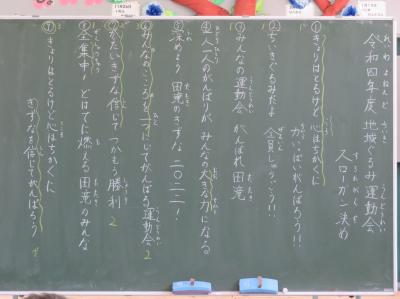 令和四年度 地域ぐるみ運動会
れいわ よねんど ちいき うんどうかい
スローガン決め
すろおがんぎ
①きょりはとるけど 心はちかくに
せいいっぱいがんばろう!!
②ちいきぐるみだよ 全員しゅうごう!!
③みんなの運動会 がんばれ田滝
④一人一人のがんばりが みんなの大きな力になる
⑤深めよう 田滝のきずな 二〇二二!
⑥みんなのこころを一つにしてがんばろう運動会 2
きずな信じて つかもう勝利 2
⑧全集中! どはでに燃える田滝のみんな
きょりはとるけど心はちかくに
きずなを信じてがんばろう